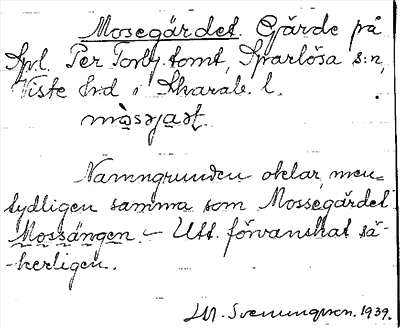 Mosegärdet. Gärde på
Spl. Per Torbj. tomt, Sparlösa s:n,
Viste hrd i Skarab. l.
mòsəjaət.
Namngrunden oklar, men
tydligen samma som Mossegärdet
Mossängen. – Utt. förvanskat sä-
-kerligen.
M. Svenungsson. 1939.